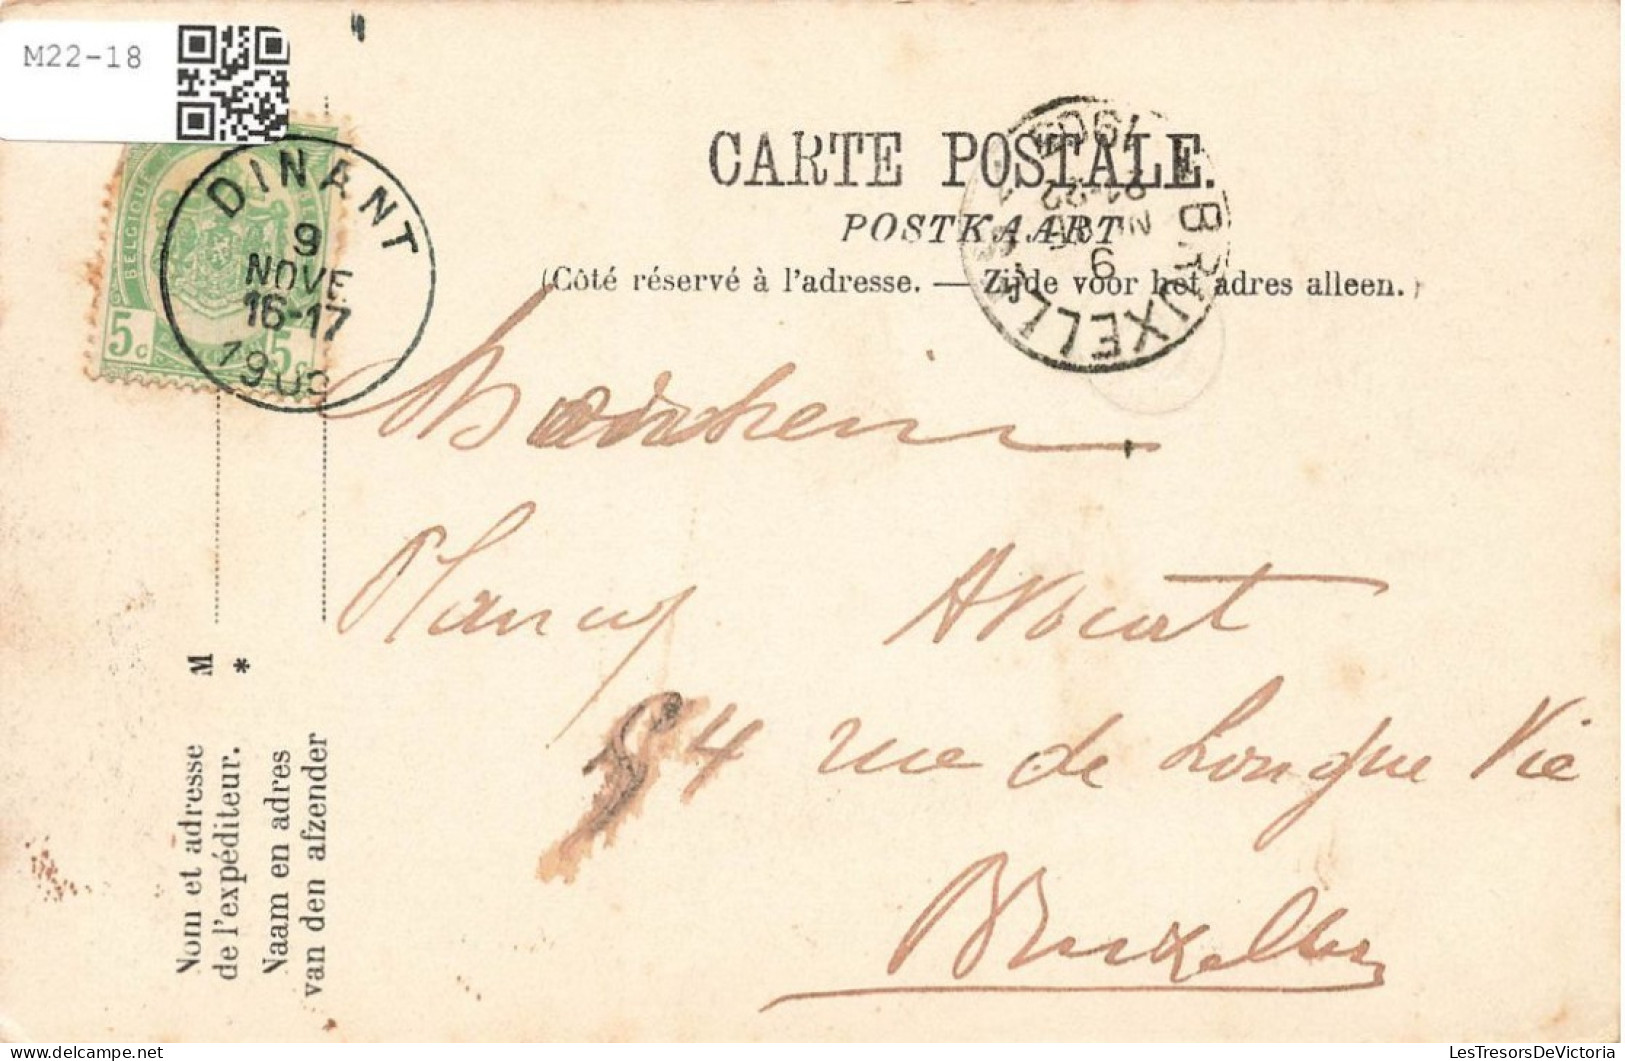 M22-18
CARTE POSTALE.
POSTKAART
(Côté réservé à l'adresse. — Zijde voor het adres alleen.)
BELGIQUE
5c 5c
DINANT
9
NOVE
16-17
BRUXELLES
9
21-22
Avocat
54 rue de Longue Vie
Bruxelles
M
*
Nom et adresse
de l'expéditeur.
Naam en adres
van den afzender
LesTresorsDeVictoria